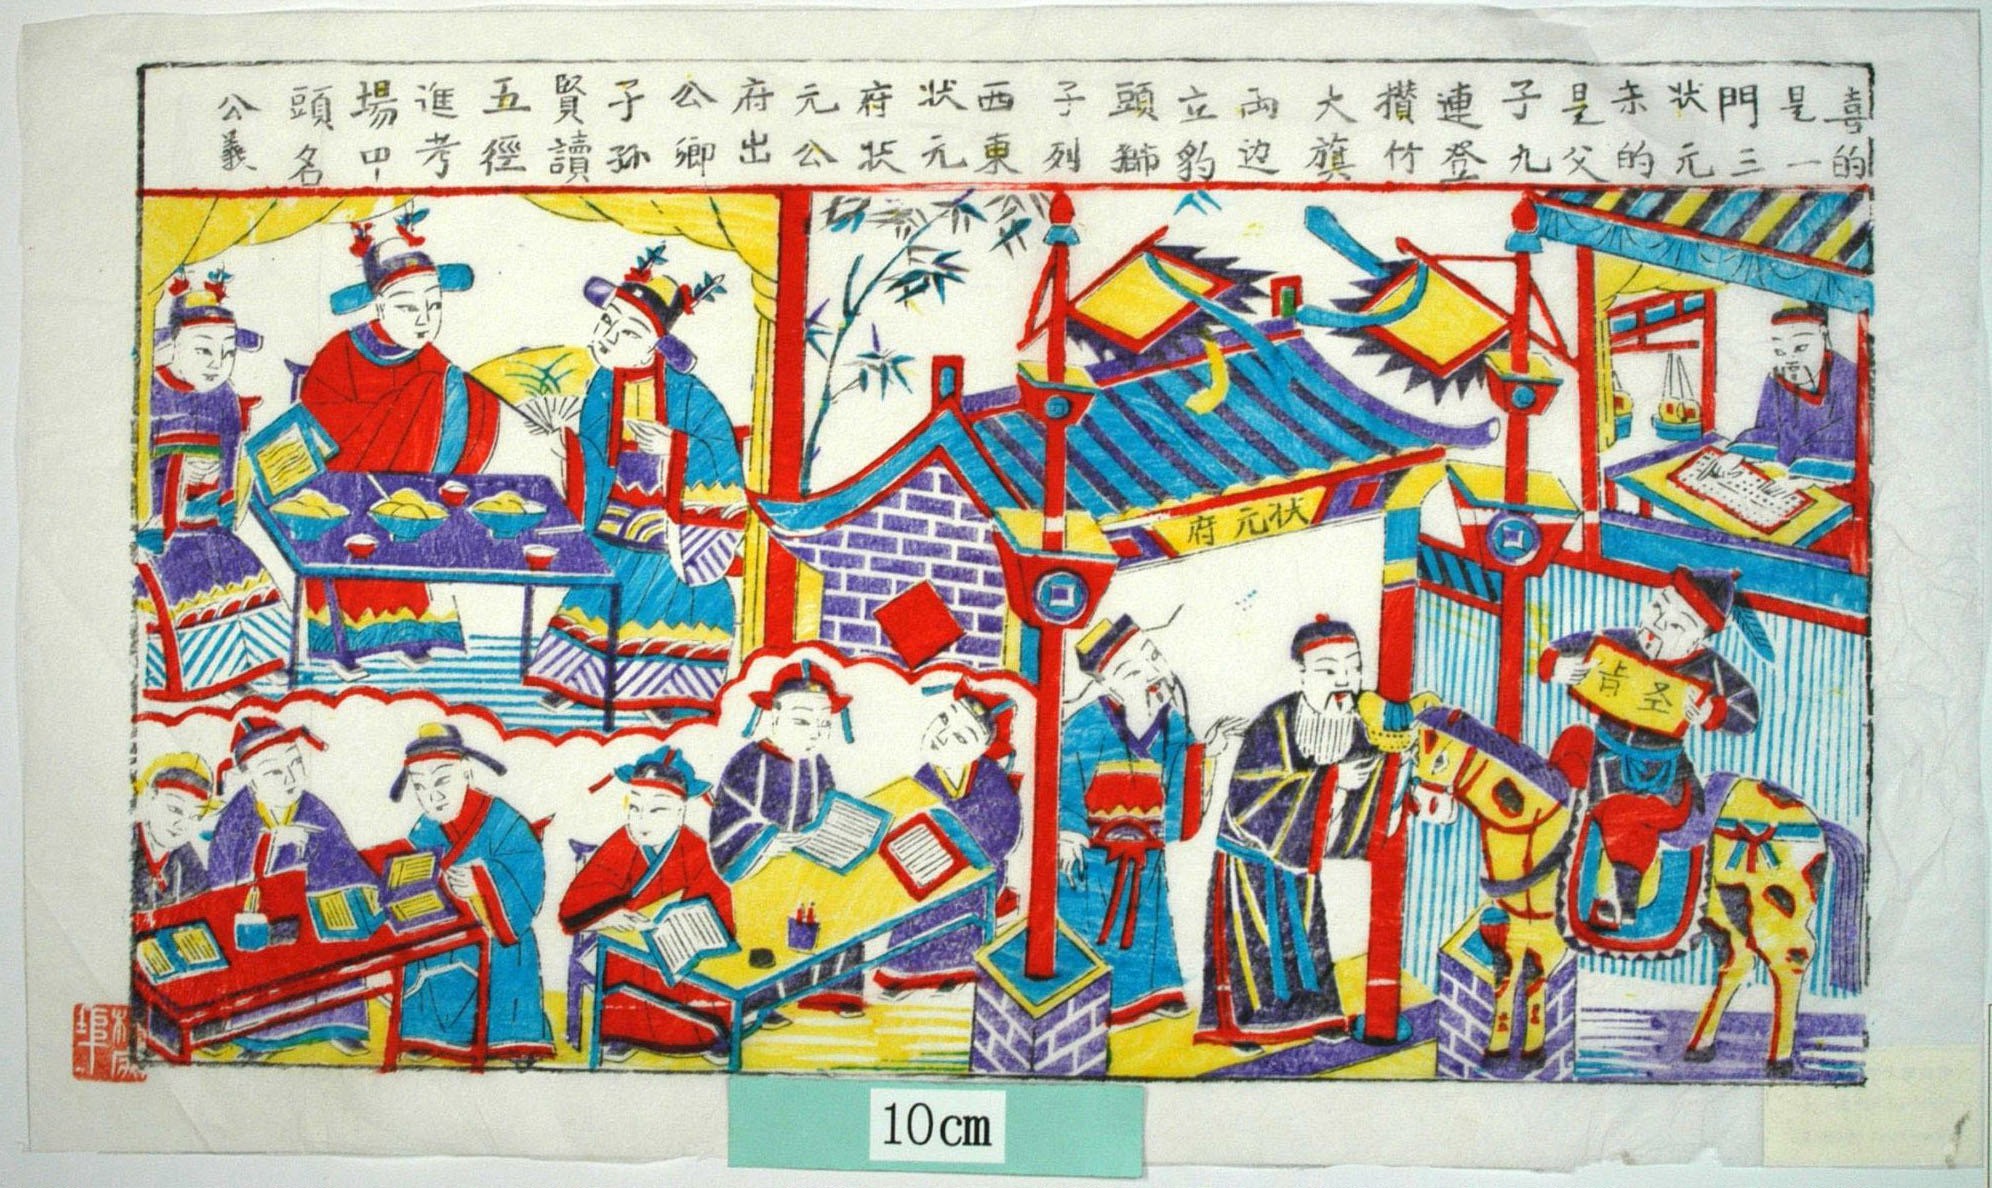 喜的
是一
門三
状元
耒的
是父
子九
連登
攢竹
大旗
両边
立豹
頭獅
子列
西東
状元
府状
元公
府出
公卿
子孙
賢讀
五徑
進考
場中
頭名
公義
状元府
圣旨
10cm